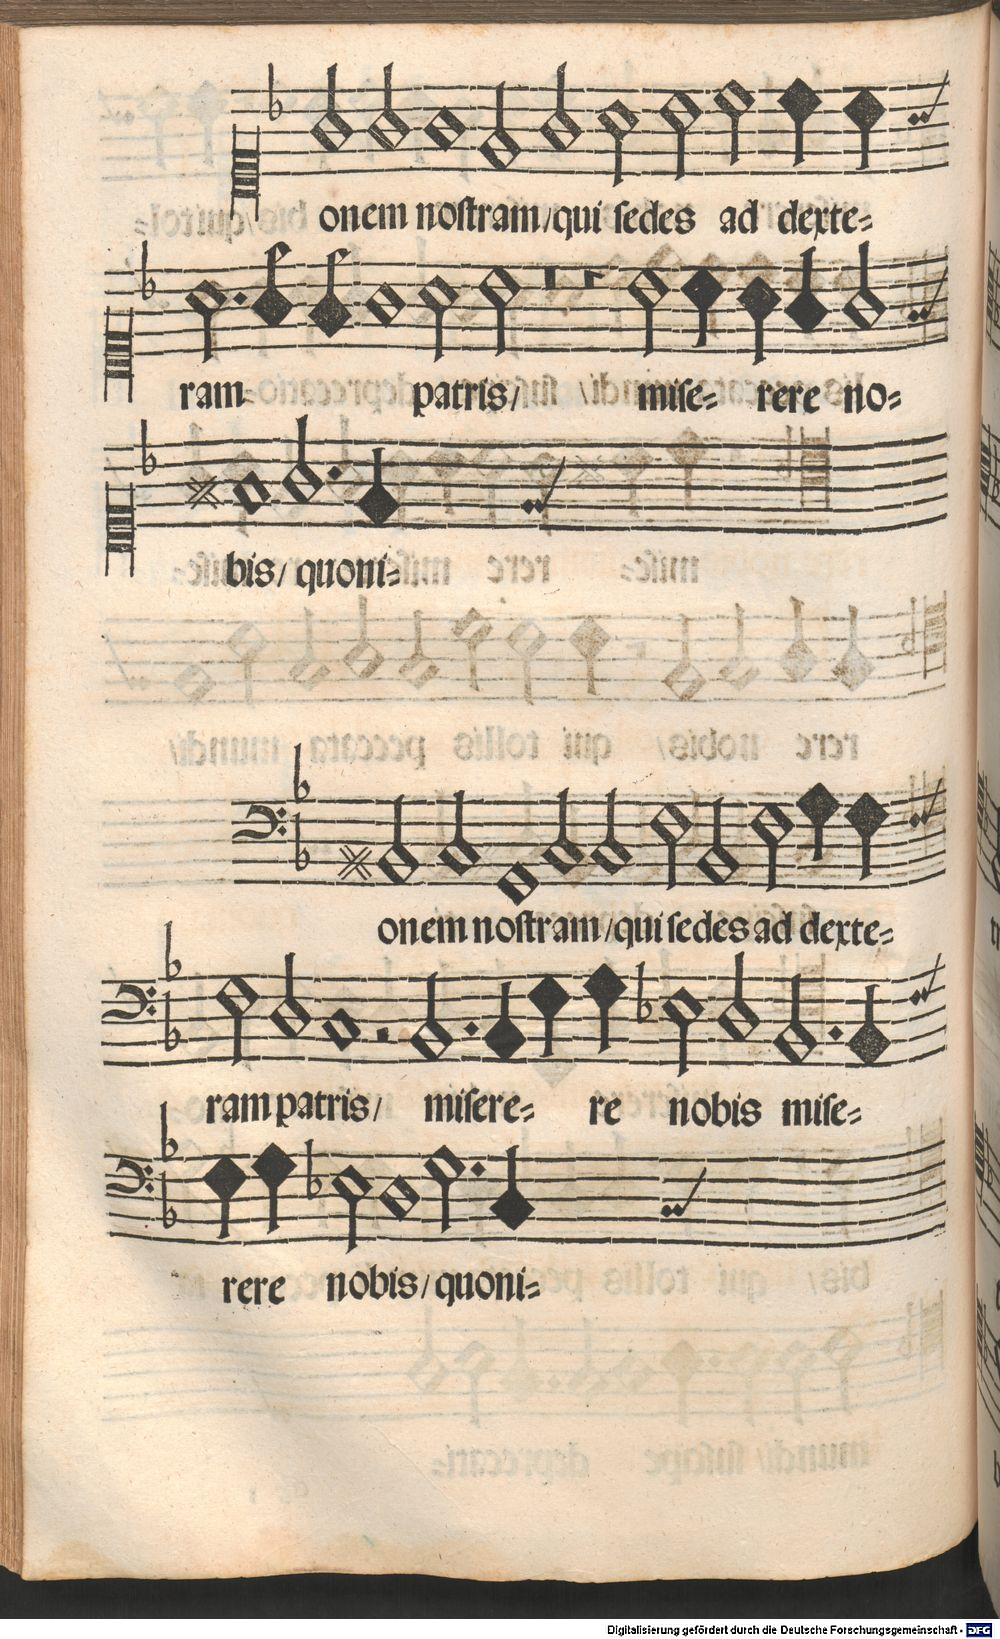 onem nostram/qui sedes ad dexte=
ram patris/ mise= rere no=
bis/ quoni=
onem nostram/qui sedes ad dexte=
ram patris/ misere= re nobis mise=
rere nobis/quoni=
Digitalisierung gefördert durch die Deutsche Forschungsgemeinschaft - DFG